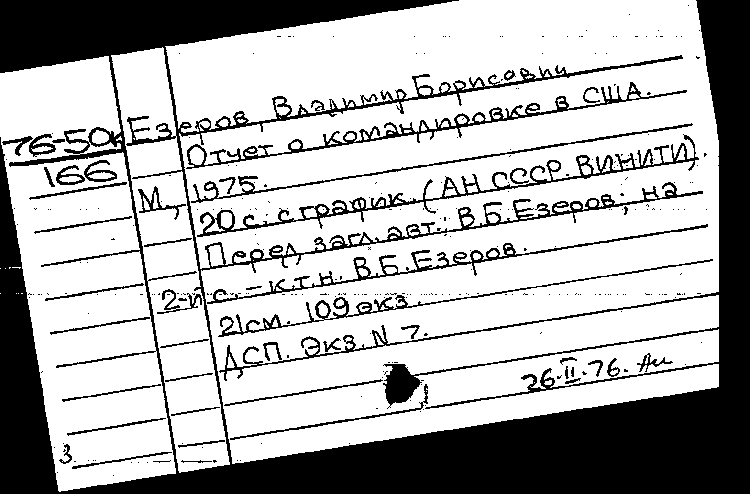 76-50к
166
Езеров, Владимир Борисович
Отчет о командировке в США.
М., 1975.
20с. с график. (АН СССР. ВИНИТИ).
Перед загл. авт.: В.Б. Езеров; на
2-й с. - к.т.н. В.Б. Езеров.
21см. 109 экз.
ДСП. Экз. N 7.
26.II.76.
3